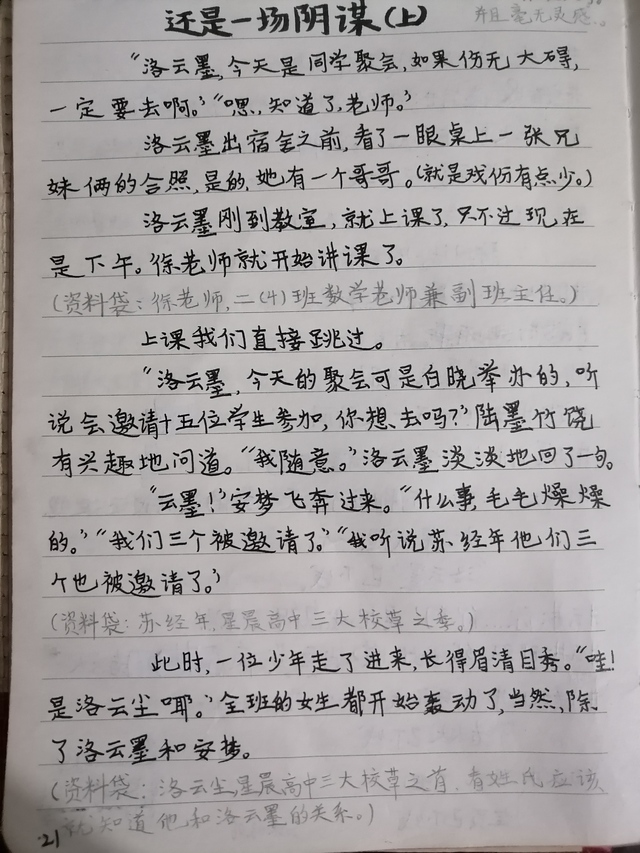 还是一场阴谋(上)
并且毫无灵感。
“洛云墨,今天是同学聚会,如果伤无大碍,
一定要去啊。”“嗯,知道了,老师。”
洛云墨出宿舍之前,看了一眼桌上一张兄
妹俩的合照,是的,她有一个哥哥。(就是戏份有点少。)
洛云墨刚到教室,就上课了,只不过现在
是下午。徐老师就开始讲课了。
(资料袋:徐老师,二(4)班数学老师兼副班主任。)
上课我们直接跳过。
“洛云墨,今天的聚会可是白晓举办的,听
说会邀请十五位学生参加,你想去吗?”陆墨竹饶
有兴趣地问道。“我随意。”洛云墨淡淡地回了一句。
“云墨!”安梦飞奔过来。“什么事,毛毛燥燥
的。”“我们三个被邀请了。”“我听说苏经年他们三
个也被邀请了。”
(资料袋:苏经年,星晨高中三大校草之季。)
此时,一位少年走了进来,长得眉清目秀。“哇!
是洛云尘耶。”全班的女生都开始轰动了,当然,除
了洛云墨和安梦。
(资料袋:洛云尘,星晨高中三大校草之首,看姓氏应该
就知道他和洛云墨的关系。)
21